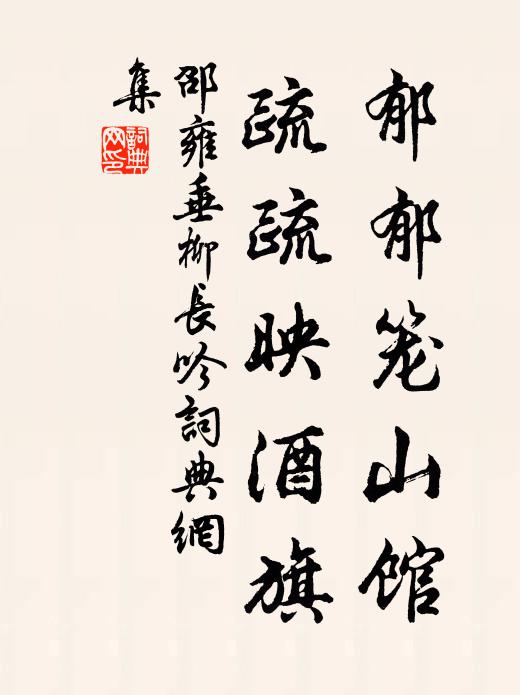 郁郁笼山馆
疏疏映酒旗
邵雍垂柳長吟詞典網
集
詞典网印